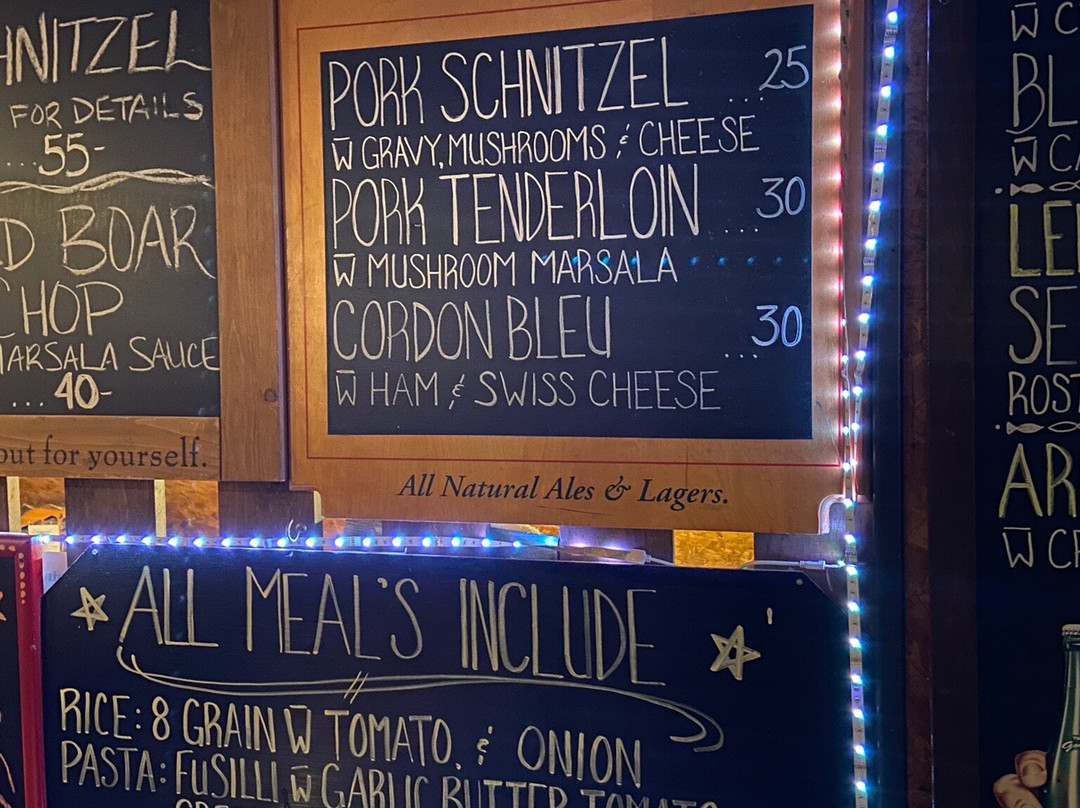 FOR DETAILS
...55-
BOAR
SAUCE
....40-
out for yourself.
PORK SCHNITZEL ....25
W̅ GRAVY, MUSHROOMS & CHEESE
PORK TENDERLOIN ....30
W̅ MUSHROOM MARSALA
CORDON BLEU ...30
W̅ HAM & SWISS CHEESE
All Natural Ales & Lagers.
ALL MEAL'S INCLUDE
RICE: 8 GRAIN W̅ TOMATO, & ONION
PASTA: FUSILLI W̅ GARLIC BUTTER TOMATO